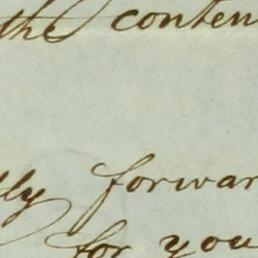 the conten
lly forwar
for you